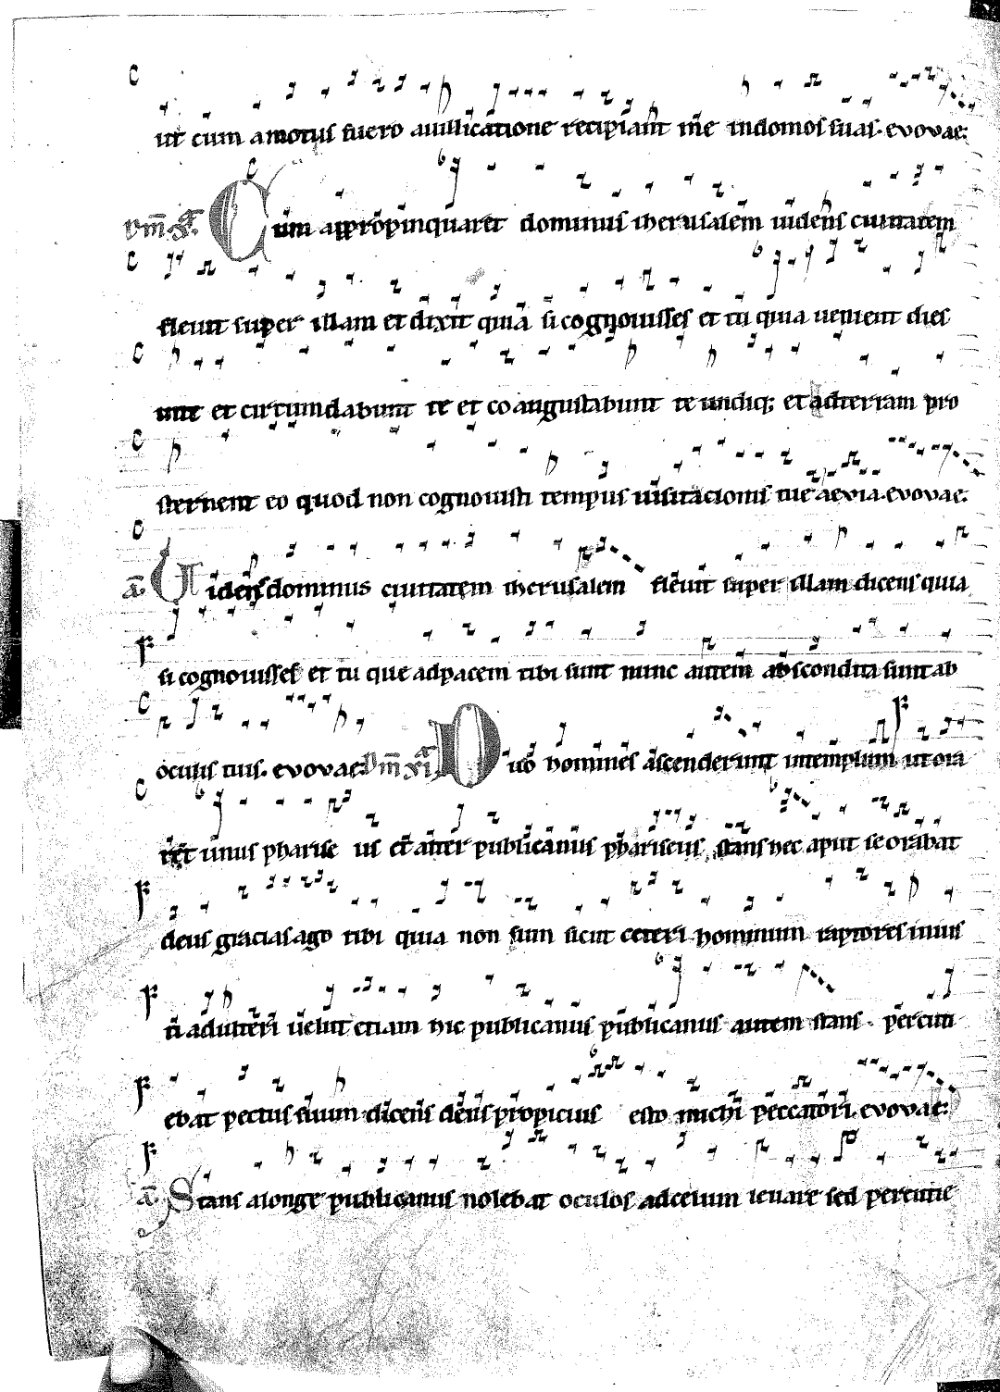 ut cum amotus fuero auillicatione recipiant me indomos suas. evovae:
Dm̄. x. Cum appropinquaret dominus iherusalem uidens ciuitatem
fleuit super illam et dixit quia si cognouisses et tu quia uenient dies
inte et circumdabunt te et coangustabunt te undiq; et adterram pro
sternent eo quod non cognouisti tempus uisitacionis tue aevia. evovae.
a. Uidens dominus ciuitatem iherusalem fleuit super illam dicens quia
si cognouisses et tu que adpacem tibi sunt nunc autem abscondita sunt ab
oculis tuis. evovae. Dm̄ xi. Duo homines ascenderunt intemplum ut ora
rent unus pharise us et alter publicanus phariseus stans hec aput se orabat
deus gracias ago tibi quia non sum sicut ceteri hominum raptores inius
ti adulteri uelut etiam hic publicanus publicanus autem stans . percuti
ebat pectus suum dicens deus propicius esto michi peccatori. evovae:
a. Stans alonge publicanus nolebat oculos adcelum leuare sed percutie